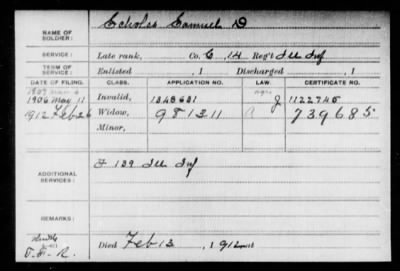 NAME OF SOLDIER: Echols Samuel D
SERVICE: Late rank, Co. G, 14 Reg't Ill Inf
TERM OF SERVICE: Enlisted , 1 Discharged , 1
DATE OF FILING. CLASS. APPLICATION NO. LAW. CERTIFICATE NO.
1906 May 11 Invalid, 1348631 J 1122745
1912 Feb 26 Widow, 981311 739685
Minor,
ADDITIONAL SERVICES: F 139 Ill Inf
REMARKS:
Died Feb 13 , 1912